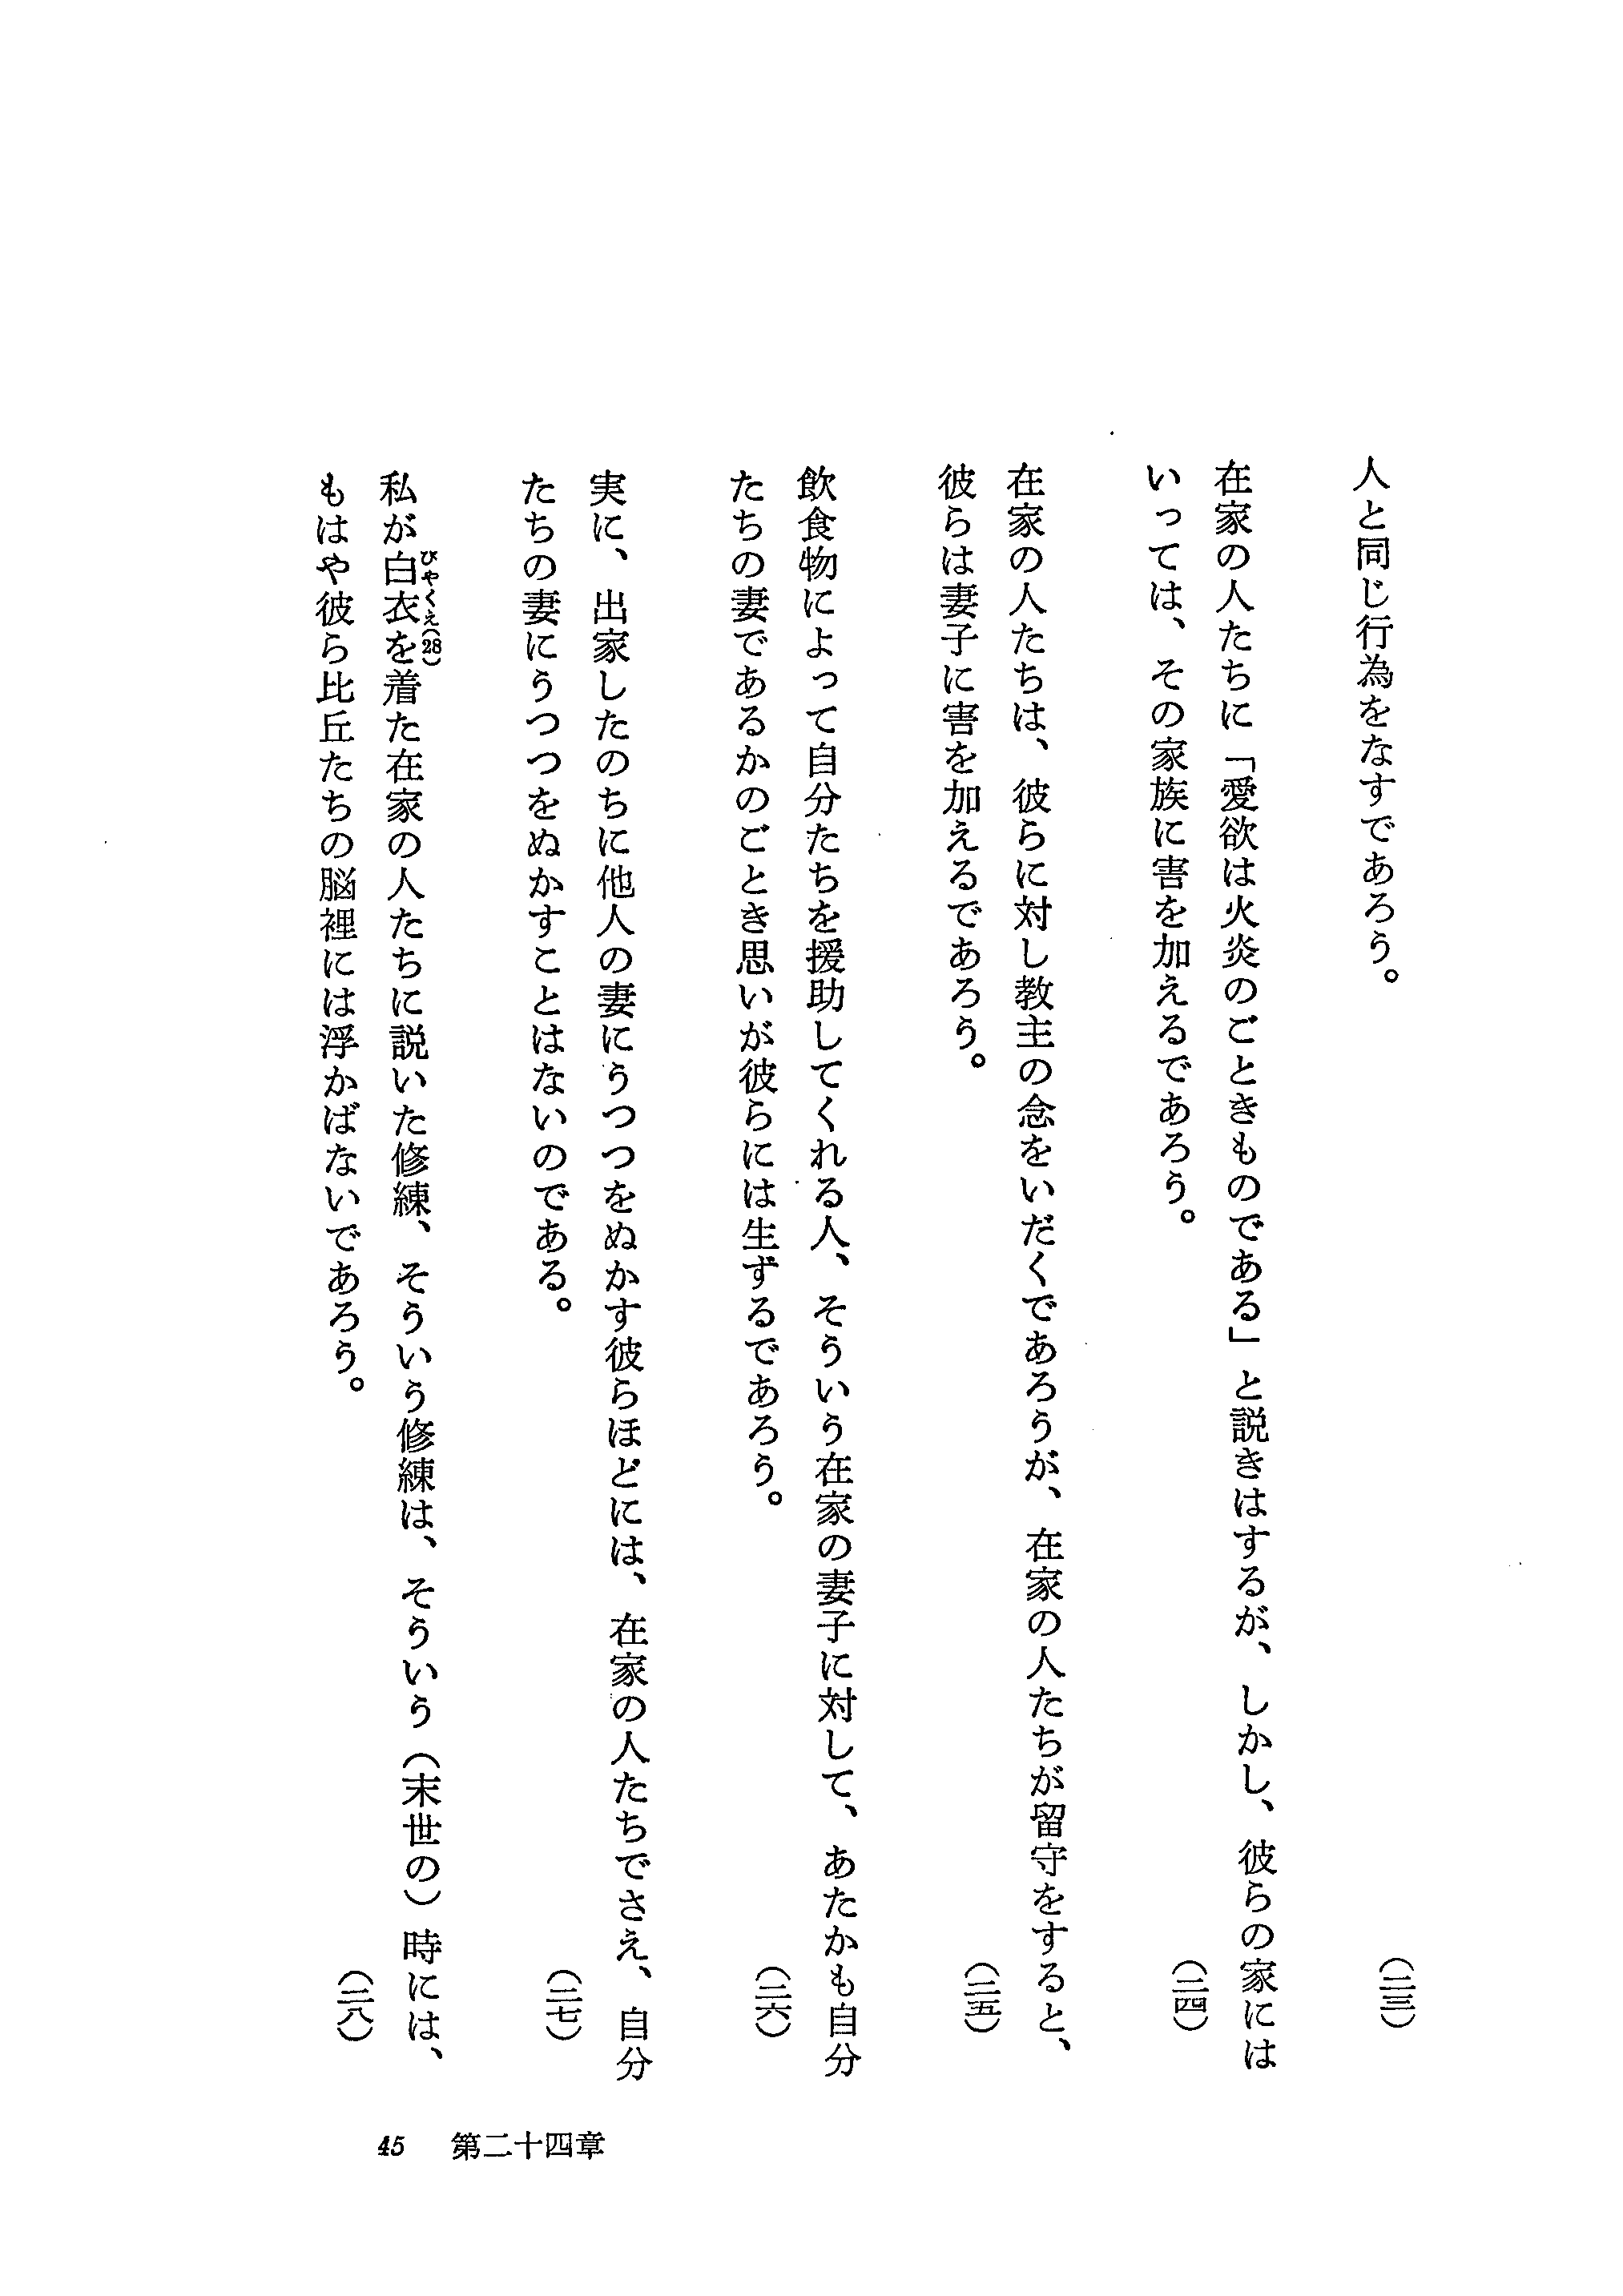 人と同じ行為をなすであろう。
(二三)
在家の人たちに「愛欲は火炎のごときものである」と説きはするが、しかし、彼らの家には
いっては、その家族に害を加えるであろう。
(二四)
在家の人たちは、彼らに対し教主の念をいだくであろうが、在家の人たちが留守をすると、
彼らは妻子に害を加えるであろう。
(二五)
飲食物によって自分たちを援助してくれる人、そういう在家の妻子に対して、あたかも自分
たちの妻であるかのごとき思いが彼らには生ずるであろう。
(二六)
実に、出家したのちに他人の妻にうつつをぬかす彼らほどには、在家の人たちでさえ、自分
たちの妻にうつつをぬかすことはないのである。
(二七)
びゃくえ(28)
私が白衣を着た在家の人たちに説いた修練、そういう修練は、そういう(末世の)時には、
もはや彼ら比丘たちの脳裡には浮かばないであろう。
(二八)
45 第二十四章